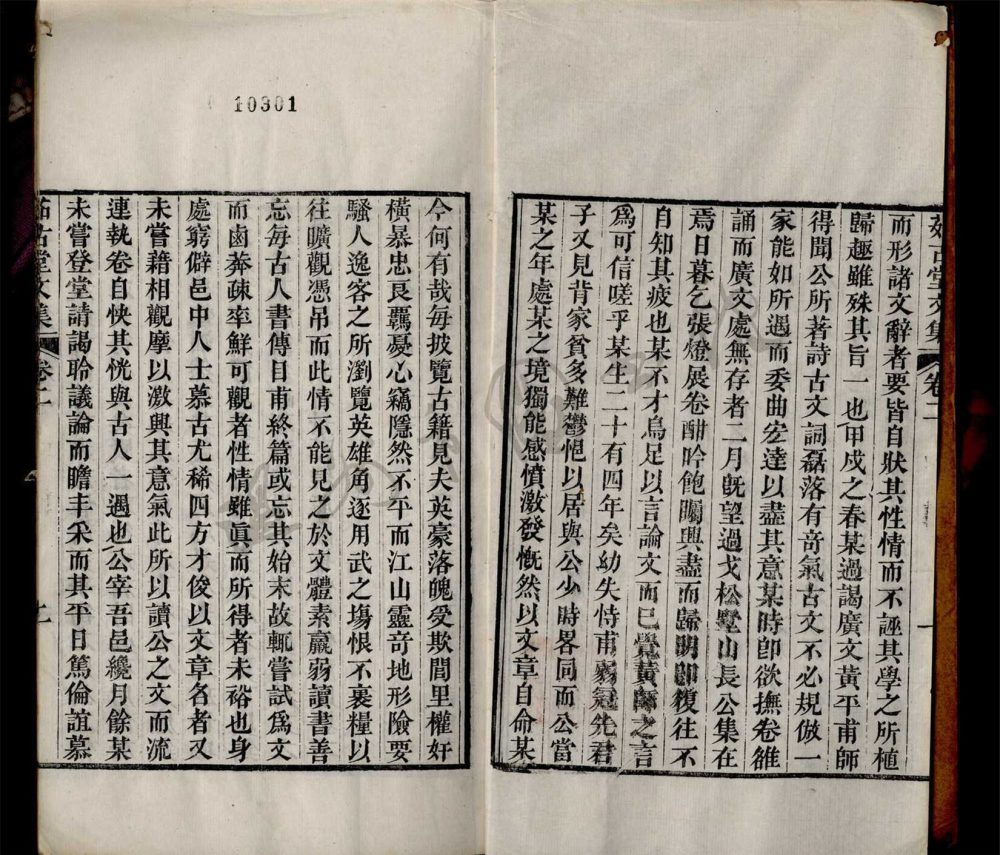 而形諸文辭者要皆自狀其性情而不誣其學之所植
歸趣雖殊其旨一也甲戍之春某過謁廣文黃平甫師
得聞公所著詩古文詞磊落有奇氣古文不必規倣一
家能如所遇而委曲宏達以盡其意某時卽欲撫卷雒
誦而廣文處無存者二月旣望過戈松墅山長公集在
焉日暮乞張燈展卷酣吟飽矚興盡而歸明卽復往不
自知其疲也某不才烏足以言論文而已覺黃師之言
爲可信嗟乎某生二十有四年矣幼失恃甫弱冠先君
子又見背家貧多難鬱悒以居與公少時畧同而公當
某之年處某之境獨能感憤激發慨然以文章自命某
今何有哉每披覽古籍見夫英豪落魄受欺閭里權奸
橫暴忠良羈憂心竊隱然不平而江山靈奇地形險要
騷人逸客之所瀏覽英雄角逐用武之塲恨不裹糧以
往曠觀憑吊而此情不能見之於文體素羸弱讀書善
忘每古人書傳目甫終篇或忘其始末故輒嘗試爲文
而鹵莽疎率鮮可觀者性情雖眞而所得者未裕也身
處窮僻邑中人士慕古尤稀四方才俊以文章名者又
未嘗藉相觀摩以激興其意氣此所以讀公之文而流
連執卷自快其恍與古人一遇也公宰吾邑纔月餘某
未嘗登堂請謁聆議論而瞻丰采而其平日篤倫誼慕
茹古堂文集 卷二
10301